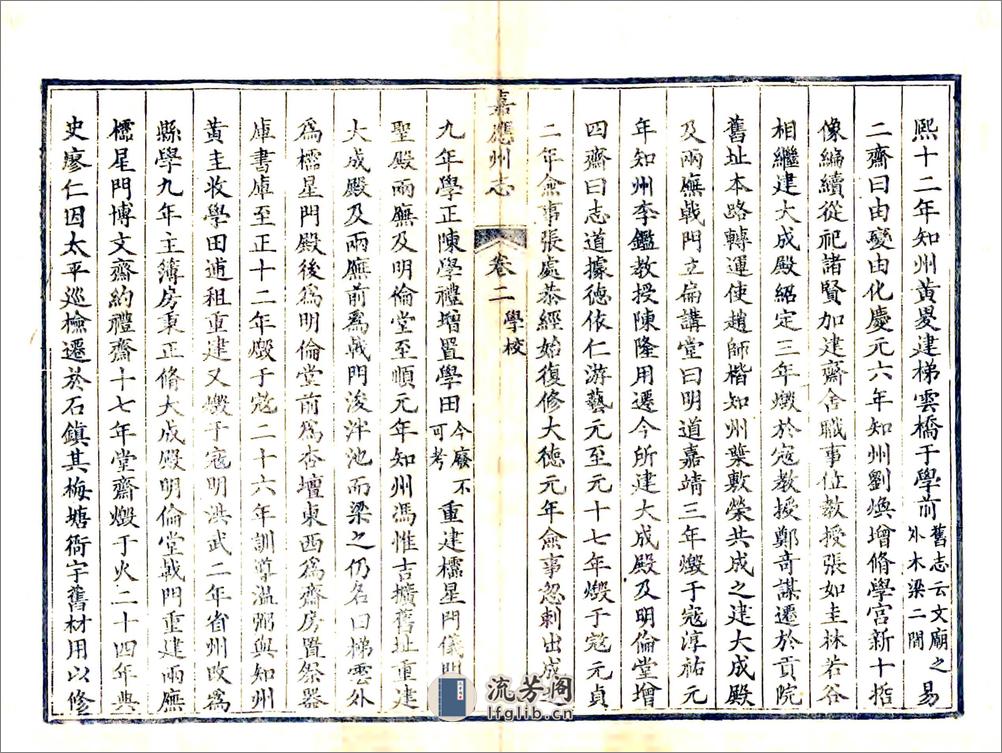 熙十二年知州黃㬅建梯雲橋于學前舊志云文廟之易外木梁二間
二齋曰由變由化慶元六年知州劉煥增脩學宮新十哲
像編續從祀諸賢加建齋舍職事位教授張如圭林若谷
相繼建大成殿紹定三年燬於寇教授鄭奇謀遷於貢院
舊址本路轉運使趙師楷知州葉敷榮共成之建大成殿
及兩廡戟門立扁講堂曰明道嘉靖三年燬于寇淳祐元
年知州李鑑教授陳隆用遷今所建大成殿及明倫堂增
四齋曰志道據德依仁游藝元至元十七年燬于寇元貞
二年僉事張處恭經始復修大德元年僉事忽剌出成
嘉應州志 卷二 學校
九年學正陳學禮增置學田今廢不可考重建櫺星門儀門
聖殿兩廡及明倫堂至順元年知州馮惟吉擴舊址重建
大成殿及兩廡前爲戟門浚泮池而梁之仍名曰梯雲外
爲櫺星門殿後爲明倫堂前爲杏壇東西爲齋房置祭器
庫書庫至正十二年燬于寇二十六年訓導溫弼與知州
黃圭收學田逋租重建又燬于寇明洪武二年省州改爲
縣學九年主簿房秉正脩大成殿明倫堂戟門重建兩廡
櫺星門博文齋約禮齋十七年堂齋燬于火二十四年典
史廖仁因太平巡檢遷於石鎮其梅塘衙宇舊材用以修
流芳阁
lfglib.cn